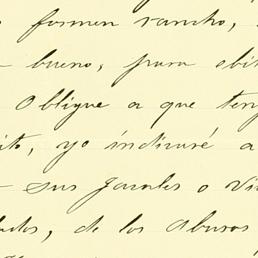 formen rancho,
bueno, para ebit
Obligue a que teng
ito, yo indicaré a
sus jacales o vi
de los abusos